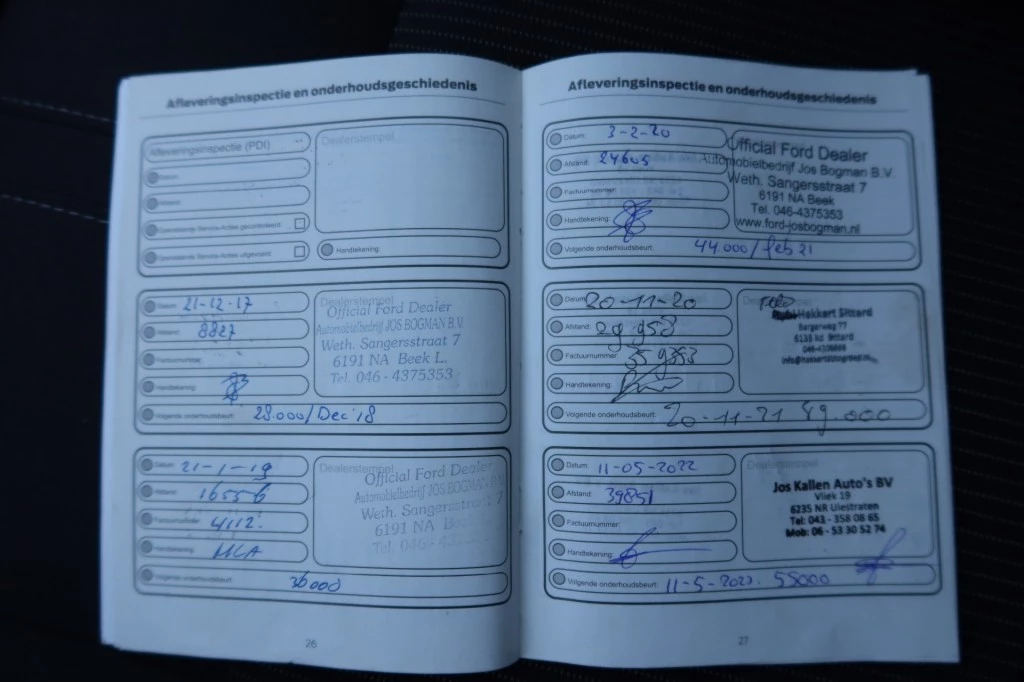 Afleveringsinspectie en onderhoudsgeschiedenis
Afleveringsinspectie (PDI)
Dealerstempel
Datum:
Afstand:
Handtekening:
Datum: 21-12-17
Afstand: 8827
Factuurnummer:
Handtekening:
Volgende onderhoudsbeurt: 28.000/Dec'18
Dealerstempel
Official Ford Dealer
Automobielbedrijf JOS BOGMAN B.V.
Weth. Sangersstraat 7
6191 NA Beek L.
Tel. 046 - 4375353
Datum: 21-1-19
Afstand: 16556
Factuurnummer: 4112.
Handtekening: MCA
Volgende onderhoudsbeurt: 36000
Dealerstempel
Official Ford Dealer
Automobielbedrijf JOS BOGMAN B.V.
Weth. Sangersstraat 7
6191 NA Beek L.
Tel. 046 - 43
26
Afleveringsinspectie en onderhoudsgeschiedenis
Datum: 3-2-20
Afstand: 24605
Factuurnummer:
Handtekening:
Volgende onderhoudsbeurt: 44.000/feb 21
Official Ford Dealer
Automobielbedrijf Jos Bogman B.V.
Weth. Sangersstraat 7
6191 NA Beek
Tel. 046-4375353
www.ford-josbogman.nl
Datum: 20-11-20
Afstand: 29.953
Factuurnummer: 359353
Handtekening:
Volgende onderhoudsbeurt: 20-11-21 49.000
Dealerstempel
Hekkert Sittard
Bergerweg 77
Sittard
Datum: 11-05-2022
Afstand: 39851
Factuurnummer:
Handtekening:
Volgende onderhoudsbeurt: 11-5-2023. 55000
Dealerstempel
Jos Kallen Auto's BV
Vliek 19
6235 NR Ulestraten
Tel: 043 - 358 08 65
Mob: 06 - 53 30 52 74
27